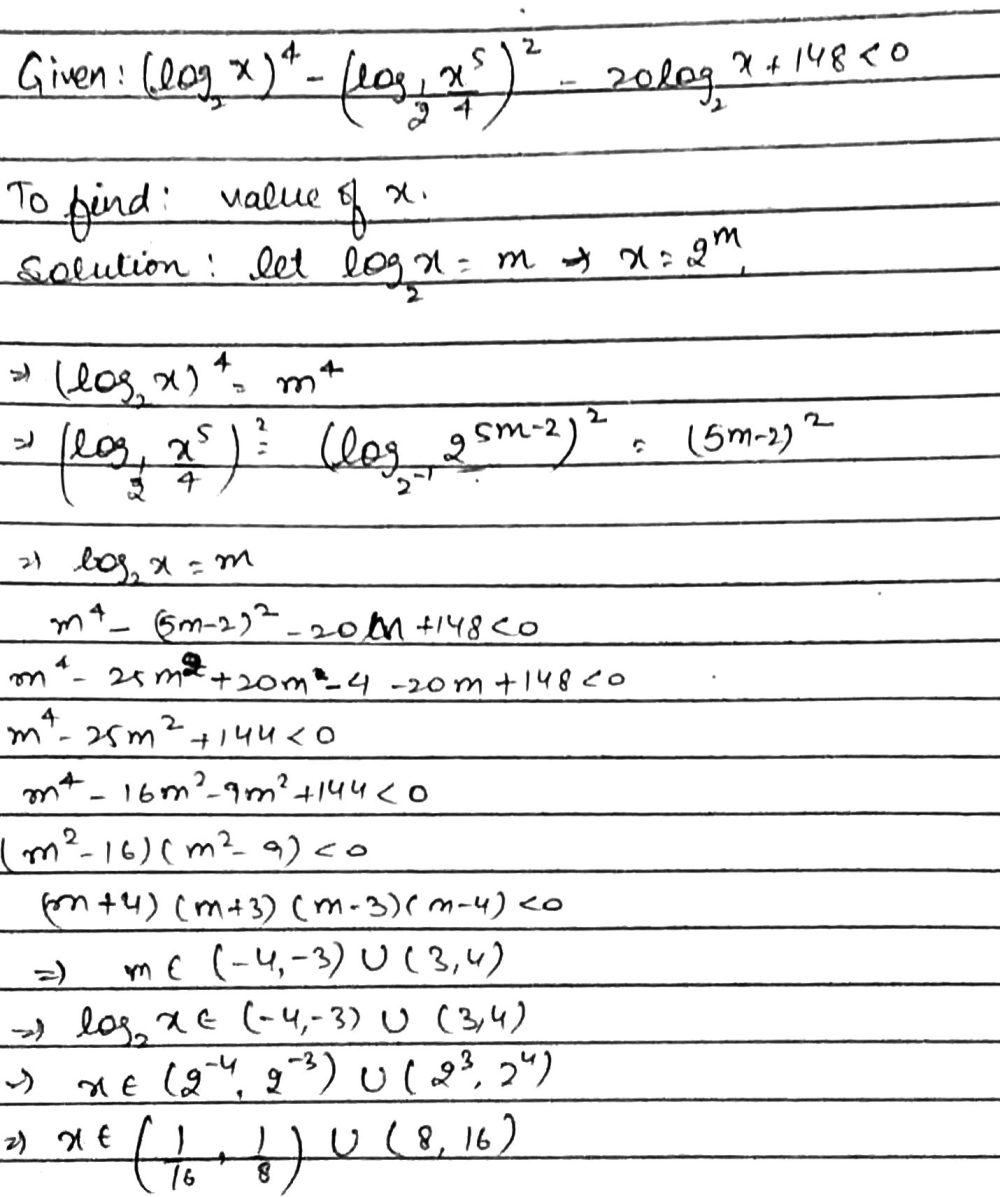 Given: (log₂ x)⁴ - (log_{1/2} x⁵/4)² - 20 log₂ x + 148 < 0
To find: value of x.
Solution: let log₂ x = m → x = 2^m,
⇒ (log₂ x)⁴ = m⁴
⇒ (log_{1/2} x⁵/4)² = (log_{2⁻¹} 2^{5m-2})² = (5m-2)²
⇒ log₂ x = m
m⁴ - (5m-2)² - 20m + 148 < 0
m⁴ - 25m² + 20m - 4 - 20m + 148 < 0
m⁴ - 25m² + 144 < 0
m⁴ - 16m² - 9m² + 144 < 0
(m² - 16) (m² - 9) < 0
(m + 4) (m + 3) (m - 3) (m - 4) < 0
⇒ m ∈ (-4, -3) ∪ (3, 4)
⇒ log₂ x ∈ (-4, -3) ∪ (3, 4)
⇒ x ∈ (2⁻⁴, 2⁻³) ∪ (2³, 2⁴)
⇒ x ∈ (1/16, 1/8) ∪ (8, 16)